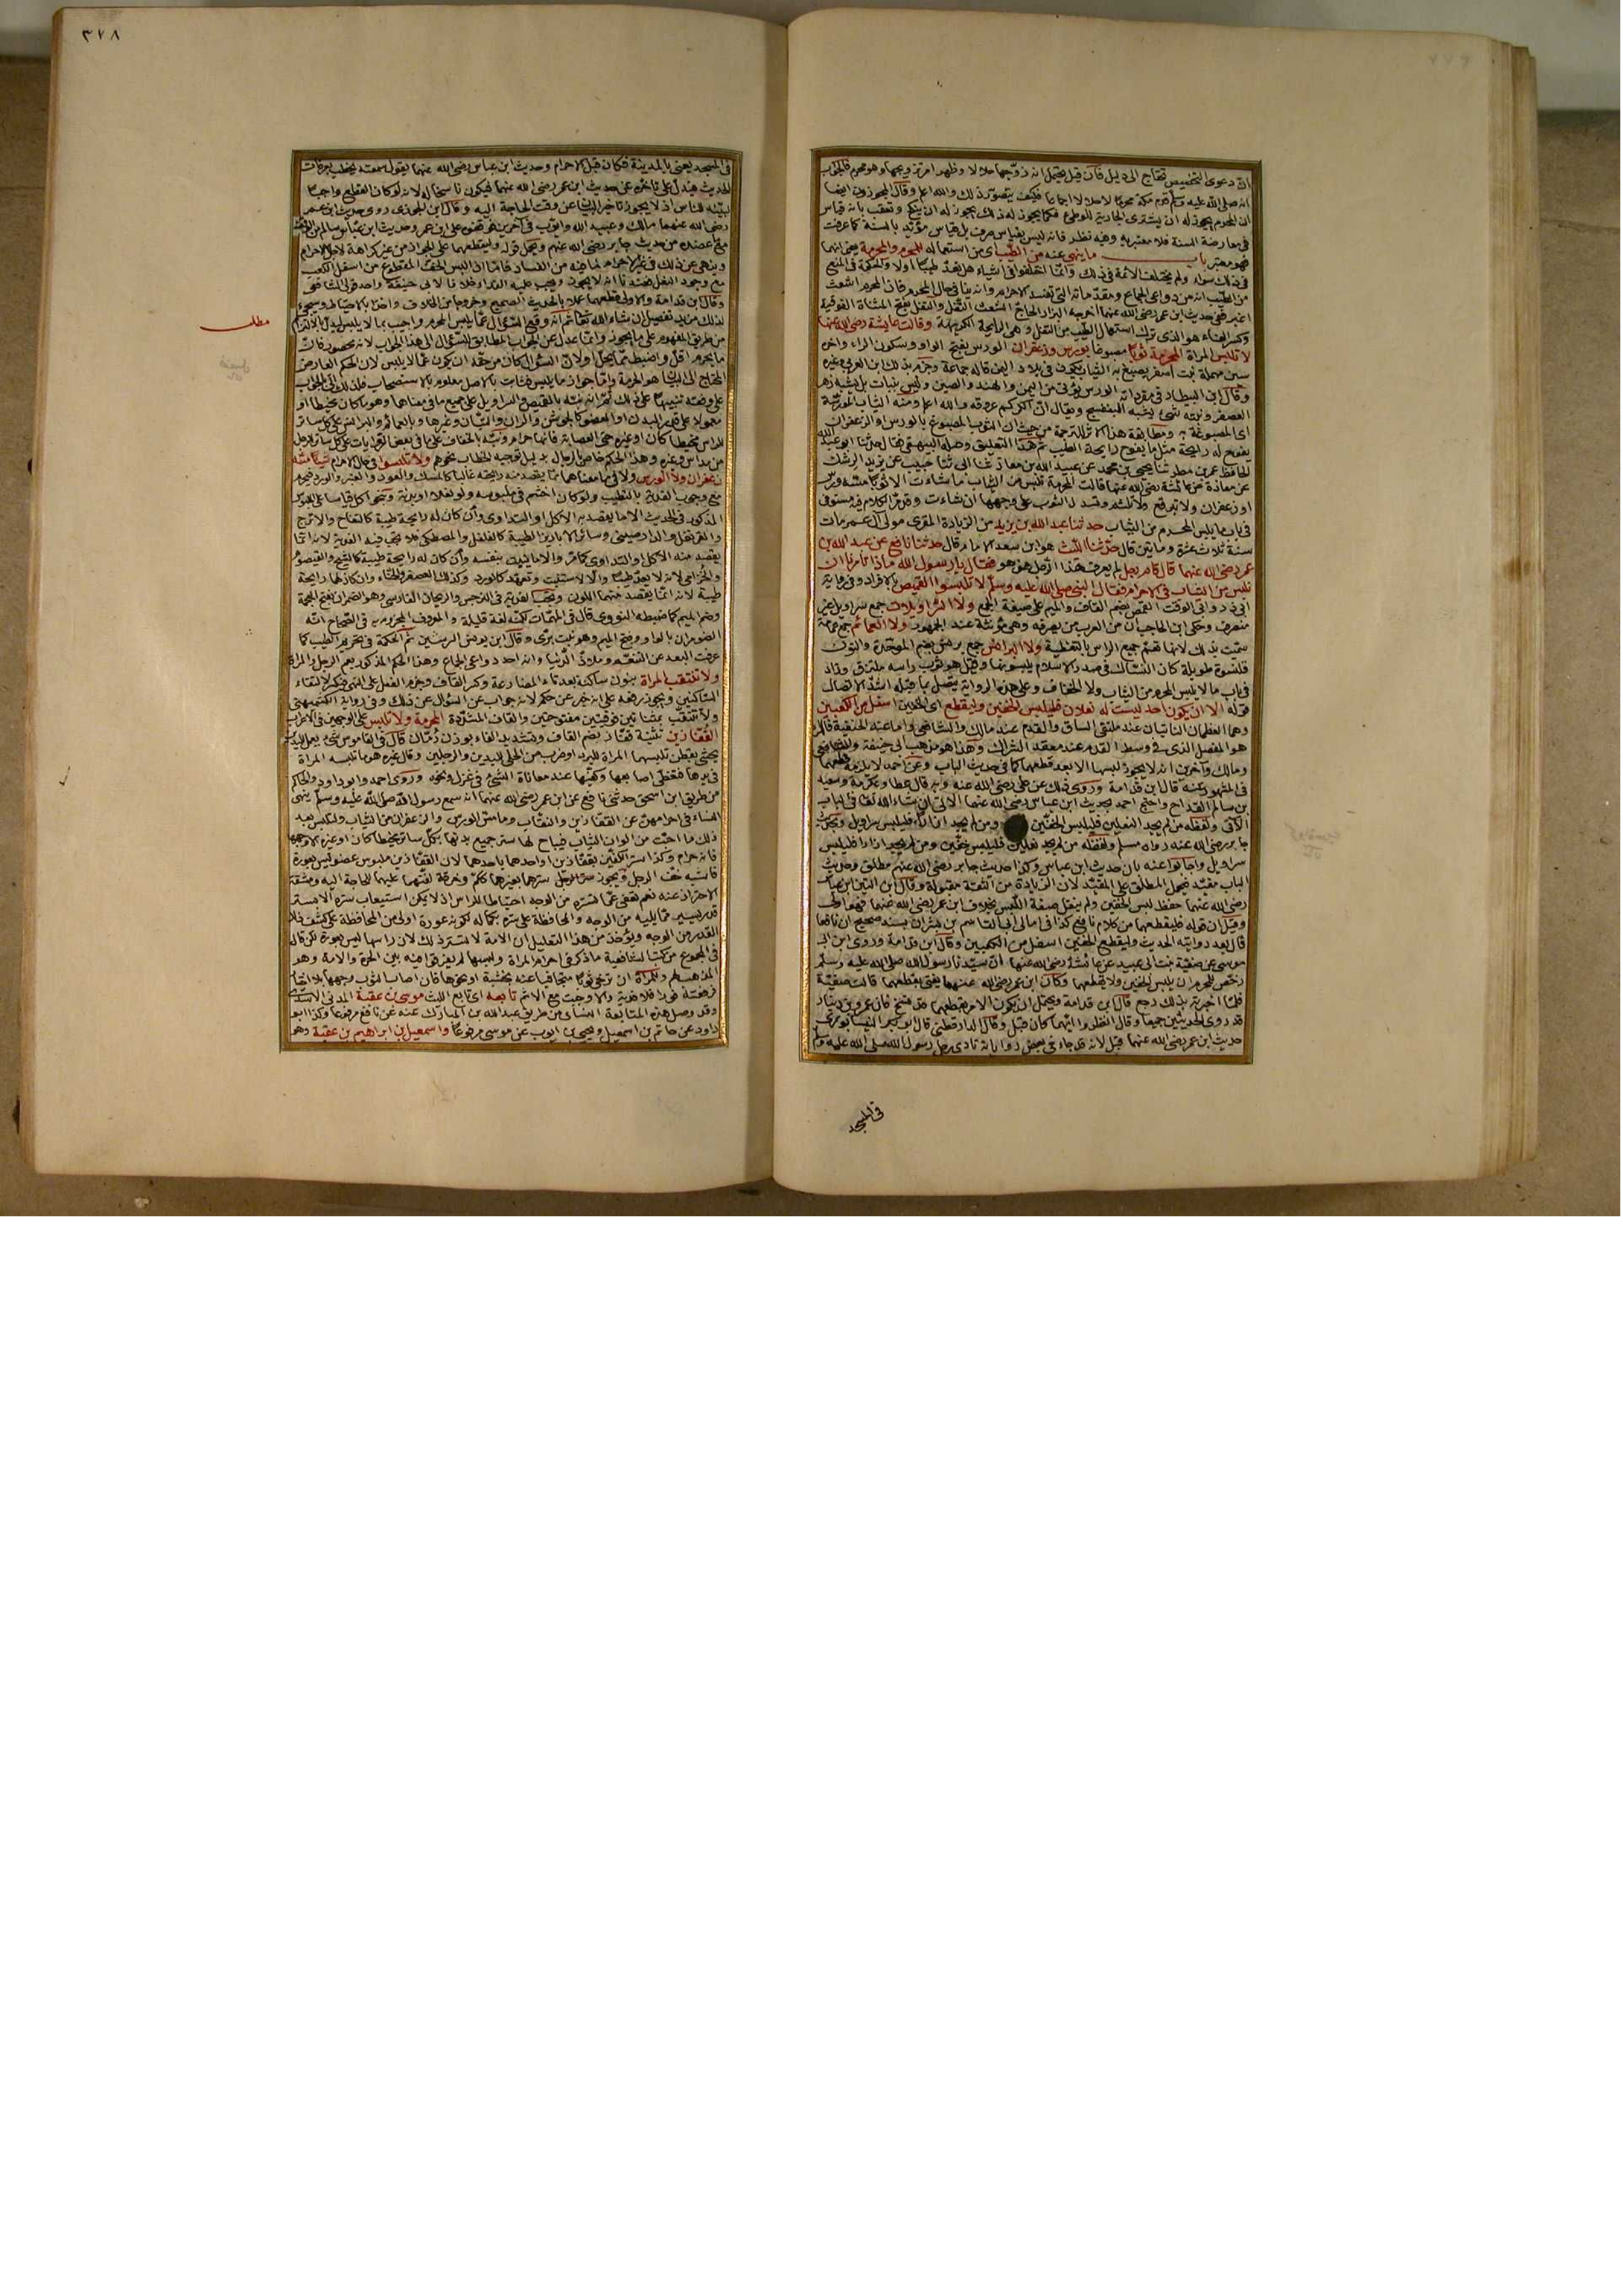 انّ دعوى التخصيص تحتاج الى دليل فان قيل يحتمل انه تزوّجها حلالا وظهر امر تزويجها وهو محرم فالجواب
انه صلى الله عليه وسلم قدم مكة محرمًا لا حلالا اجماعا فكيف يتصوّر ذلك والله اعلم وقال المجوزون ايضا
ان المحرم يجوز له ان يشترى الجارية للوطئ فكما يجوز له ذلك يجوز له ان ينكح وتعقب بانه قياس
فى معارضة السنة فلا معتبر به وفيه نظر فانه ليس بقياس صرف بل قياس مؤيّد بالسنة كما عرفت
فهو معتبر باب ما ينهى عنه من الطّيب اى من استعماله للمحرم والمحرمة يعنى انهما
فى ذلك سواء ولم يختلف الائمة فى ذلك وانّما اختلفوا فى اشياء هل تعدّ طيبًا اولا والحكمة فى المنع
من الطّيب انه من دواعى الجماع ومقدّماته التى تفسد الاحرام وانه ينافى حال المحرم فانّ المحرم اشعث
اغبر ففى حديث ابن عمر رضى الله عنهما اخرجه البزار الحاجّ الشعث التّفل والتفل بفتح المثناة الفوقية
وكسر الفاء هو الذى ترك استعمال الطّيب من التفل وهى الرايحة الكريهة وقالت عايشة رضى الله عنها
لا تلبس المراة المحرمة ثوبًا مصبوغا بورس وزعفران الورس بفتح الواو وسكون الراء واخره
سين مهملة نبت اصفر يصبغ به الثياب يكون فى بلاد اليمن قاله جماعة وجزم بذلك ابن العربى وغيره
وقال ابن البيطار فى مفرداته الورس يؤتى من اليمن والهند والصين وليس بنبات بل يشبه زهر
العصفر ونبته شىء يشبه البنفسج ويقال انّ الكركم عروقه والله اعلم ومنه الثياب المورّسة
اى المصبوغة به ومطابقة هذا الاثر للترجمة من حيث ان الثوب المصبوغ بالورس او الزعفران
يفوح له رايحة مثل ما يفوح رايحة الطيب ثم هذا التعليق وصله البيهقى فقال حدّثنا ابو عبد الله
الحافظ عمر بن مطر ثنا يحيى بن محمد عن عبيد الله بن معاذ ثنا ابى ثنا حبيب عن يزيد الرشك
عن معاذة عن عائشة رضى الله عنها قالت المحرمة تلبس من الثياب ما شاءت الا ثوبًا مسّه ورس
او زعفران ولا تتبرقع ولا تلثم وتسدل الثوب على وجهها ان شاءت وقد مرّ الكلام فيه مستوفى
فى باب ما يلبس المحرم من الثياب حدثنا عبد الله بن يزيد من الزيادة المقرى مولى آل عمر مات
سنة ثلاث عشرة ومايتين قال حدّثنا اللّيث هو ابن سعد الامام قال حدثنا نافع عن عبد الله بن
عمر رضى الله عنهما قال قام رجل لم يعرف هذا الرّجل من هو فقال يا رسول الله ماذا تأمرنا ان
نلبس من الثياب فى الاحرام فقال النبى صلى الله عليه وسلم لا تلبسوا القميص بالافراد وفى رواية
ابى ذر وابى الوقت القمص بضم القاف والميم على صيغة الجمع ولا السّراويلات جمع سراويل غير
منصرف وحكى ابن الحاجب ان من العرب من يصرفه وهى مؤنثة عند الجمهور ولا العمائم جمع عمامة
سمّيت بذلك لانها تعمّ جميع الراس بالتغطية ولا البرانس جمع برنس بضم الموحّدة والنون
قلنسوة طويلة كان النّسّاك فى صدر الاسلام يلبسونها وقيل هو ثوب راسه ملتزق وزاد
فى باب ما لا يلبس المحرم من الثياب ولا الخفاف وعلى هذه الرواية يتصل بما قبله اشدّ الاتصال
قوله الا ان يكون احد ليست له نعلان فليلبس الخفّين وليقطع اى الخفين اسفل من الكعبين
وهما العظمان الناتيان عند ملتقى الساق والقدم عند مالك والشافعى واما عند الحنفية فالمراد
هو المفصل الذى فى وسط القدم عند معقد الشراك وهذا هو مذهب ابى حنيفة والشافعى
ومالك وآخرين انه لا يجوز لبسها الا بعد قطعهما كما فى حديث الباب وعن احمد لا يلزمه قطعهما
فى المشهور عنه قال ابن قدامة وروى ذلك عن على رضى الله عنه وبه قال عطا وعكرمة وسعيد
بن سالم القدّاح واحتج احمد بحديث ابن عباس رضى الله عنهما الاتى ان شاء الله تعالى فى الباب
الآتى ولفظه من لم يجد النعلين فليلبس الخفّين ومن لم يجد ازارًا فليلبس سراويل وبحديث
جابر رضى الله عنه رواه مسلم ولفظه من لم يجد نعلين فليلبس خفّين ومن لم يجد ازارا فليلبس
سراويل واجابوا عنه بان حديث ابن عباس وكذا حديث جابر رضى الله عنهم مطلق وحديث
الباب مقيّد فيحمل المطلق على المقيّد لان الزيادة من الثقة مقبولة وقال ابن التين ابن عباس
رضى الله عنهما حفظ لبس الخفّين ولم ينقل صفة اللّبس بخلاف ابن عمر رضى الله عنهما فهو اولى
وقيل ان قوله فليقطعهما من كلام نافع كذا فى امالى ابى القاسم بن بشران بسند صحيح ان نافعا
قال بعد روايته الحديث وليقطع الخفين اسفل من الكعبين وقال ابن قدامة وروى ابن ابى
موسى عن صفيّة بنت ابى عبيد عن عائشة رضى الله عنها انّ سيّدنا رسول الله صلى الله عليه وسلم
رخّص للمحرم ان يلبس الخفين ولا يقطعهما وكان ابن عمر رضى الله عنهما يفتى بقطعهما قالت صفيّة
فلمّا اخبرته بذلك رجع قال ابن قدامة ويحتمل ان يكون الامر بقطعهما قد نسخ فان عمرو بن دينار
قد روى الحديثين جميعا وقال انظروا ايّهما كان قبل وقال الدارقطنى قال ابو بكر النيسابورى
حديث ابن عمر رضى الله عنهما قبل لانه قد جاء فى بعض رواياته نادى رجل رسول الله صلى الله عليه وسلم
فى المسجد
٣٧٨
فى المسجد يعنى بالمدينة فكان قبل الاحرام وحديث ابن عباس رضى الله عنهما يقول سمعته يخطب بعرفات
الحديث فيدلّ على تأخّره عن حديث ابن عمر رضى الله عنهما فيكون ناسخا له لانه لو كان القطع واجبًا
لبيّنه للناس اذ لا يجوز تاخير البيان عن وقت الحاجة اليه وقال ابن الجوزى روى حديث ابن عمر
رضى الله عنهما مالك وعبيد الله وايّوب فى آخرين فوقفوه على ابن عمر وحديث ابن عبّاس سالم من الوقف
مع ما عضده من حديث جابر رضى الله عنهم ويحمل قوله وليقطعهما على الجواز من غير كراهة لاجل الاحرام
وينهى عن ذلك فى غير الاحرام لما فيه من الفساد فامّا اذا لبس الخفّ المقطوع من اسفل الكعب
مع وجود النعل فعندنا انه لا يجوز ويجب عليه الفداء خلافا لابى حنيفة واحد قولى الشافعى
وقال ابن قدامة والاولى قطعهما عملا بالحديث الصحيح وخروجا من الخلاف واخذا بالاحتياط وسيجىء
لذلك مزيد تفصيل ان شاء الله تعالى ثم انّه وقع السّؤال عمّا يلبس المحرم واجيب بما لا يلبس ليدلّ بالالتزام
من طريق المفهوم على ما يجوز وانّما عدل عن الجواب المطابق للسّؤال الى هذا الجواب لانه محصور فانّ
ما يحرم اقل واضبط ممّا يحلّ او لانّ السؤال كان من حقّه ان يكون عمّا لا يلبس لان الحكم العارض
المحتاج الى البيان هو الحرمة وامّا جواز ما يلبس فثابت بالاصل معلوم بالاستصحاب فلذلك اتى بالجواب
على وفقه تنبيهًا على ذلك ثم انه نبّه بالقميص والسراويل على جميع ما فى معناهما وهو ما كان مخيطا او
معمولا على قدر البدن او العضو كالجوشن والران والتبّان وغيرها وبالعمائم والبرانس على كل ساتر
للراس مخيطا كان او غيره حتى العصابة فانها حرام ونبّه بالخفاف على ما فى بعض الروايات على كل ساتر للرجل
من مداس وغيره وهذا الحكم خاص بالرجال بدليل توجيه الخطاب نحوهم ولا تلبسوا فى حال الاحرام شيئًا مسّه
زعفران ولا الورس ولا فى ما معناهما مما يقصد منه رايحته غالبا كالمسك والعود والعنبر والورد فيحرم
مع وجوب الفدية بالتطيب ولو كان اختم فى ملبوسه ولو نعلا او بدنه ونحو اكل قياسا على الملبوس
المذكور فى الحديث الا ما يقصد به الاكل او التداوى وان كان له رايحة طيبة كالتفاح والاترج
والقرنفل والدارصينى وسائر الابازير الطيبة كالفلفل والمصطكى فلا تجب فيه الفدية لانه انّما
يقصد منه الاكل او التداوى كما مرّ والا ما ينبت بنفسه وان كان له رايحة طيبة كالشيح والقيصوم
والخزامى لانه لا يعدّ طيبًا والّا لاستنبت وتعهّد كالورد وكذلك العصفر والحنّاء وان كان لهما رايحة
طيبة لانه انّما يقصد منهما اللون وتجب الفدية فى النرجس والريحان الفارسى وهو الضمران بفتح المعجمة
وضم الميم كما ضبطه النووى قال فى المهمّات لكنّه لغة قليلة والمعروف المجزوم به فى الصّحاح انّه
الضومران بالواو وفتح الميم وهو نبت برّى وقال ابن يونس المرسين ثم الحكمة فى تحريم الطيب كما
عرفت البعد عن التنعّم وملاذّ الدّنيا وانه احد دواعى الجماع وهذا الحكم المذكور يعم الرجل والمراة
ولا تنتقب المراة بنون ساكنة بعد تاء المضارعة وكسر القاف وجزم الفعل على النهى فيكسر لالتقاء
الساكنين ويجوز رفعه على انه خبر عن حكم لانه جواب عن السؤال عن ذلك وفى رواية الكشميهنى
ولا تتنقّب بمثناتين فوقيتين مفتوحتين والقاف المشدّدة المحرمة ولا تلبس على الوجهين فى الاعراب
القفّازين تثنية قفّاز بضم القاف وتشديد الفاء بوزن رُمّان قال فى القاموس شىء يعمل لليدين
يحشى بقطن تلبسهما المراة للبرد او ضرب من الحلى لليدين والرجلين وقال غيره هو ما تلبسه المراة
فى يدها فتغطّى اصابعها وكفّيها عند معاناة الشىء فى غزل ونحوه وروى احمد وابو داود والحاكم
من طريق ابن اسحق حدثنى نافع عن ابن عمر رضى الله عنهما انه سمع رسول الله صلى الله عليه وسلم ينهى
النساء فى احرامهنّ عن القفّازين والنقاب وما مسّ الورس والزعفران من الثياب ولتلبس بعد
ذلك ما احبّت من الوان الثياب فيباح لها ستر جميع بدنها بكلّ ساتر مخيطا كان او غيره الا وجهها
فانه حرام وكذا ستر الكفّين بقفّازين او احدهما باحدهما لان القفّازين ملبوس عضو ليس بعورة
فاشبه خفّ الرجل ويجوز ستر الرجل سترهما بغيرهما ككمّ وخرقة لفّتهما عليهما للحاجة اليه ومشقة
الاحتراز عنه نعم يعفى عمّا تستره من الوجه احتياطا للراس اذ لا يمكن استيعاب ستره الا بستر
قدر يسير ممّا يليه من الوجه والمحافظة على ستره بكماله لكونه عورة اولى من المحافظة على كشف ذلك
القدر من الوجه ويؤخذ من هذا التعليل ان الامة لا تستر ذلك لان راسها ليس بعورة لكن قال
فى المجموع من كتب الشافعية ما ذكر فى احرام المراة ولبسها لم يفرقوا فيه بين الحرة والامة وهو
المذهب وللمراة ان ترخى ثوبًا متجافيا عنه بخشبة او نحوها فان اصاب الثوب وجهها بلا اختيار
فرفعته فورا فلا فدية والا وجبت مع الاثم تابعه اى تابع الليث موسى بن عقبة المدنى الاسدى
وقد وصل هذه المتابعة النسائى من طريق عبد الله بن المبارك عنه عن نافع مرفوعًا وكذا ابو
داود عن حاتم بن اسمعيل ويحيى بن ايوب عن موسى مرفوعًا واسمعيل بن ابراهيم بن عقبة وهو
مطلب